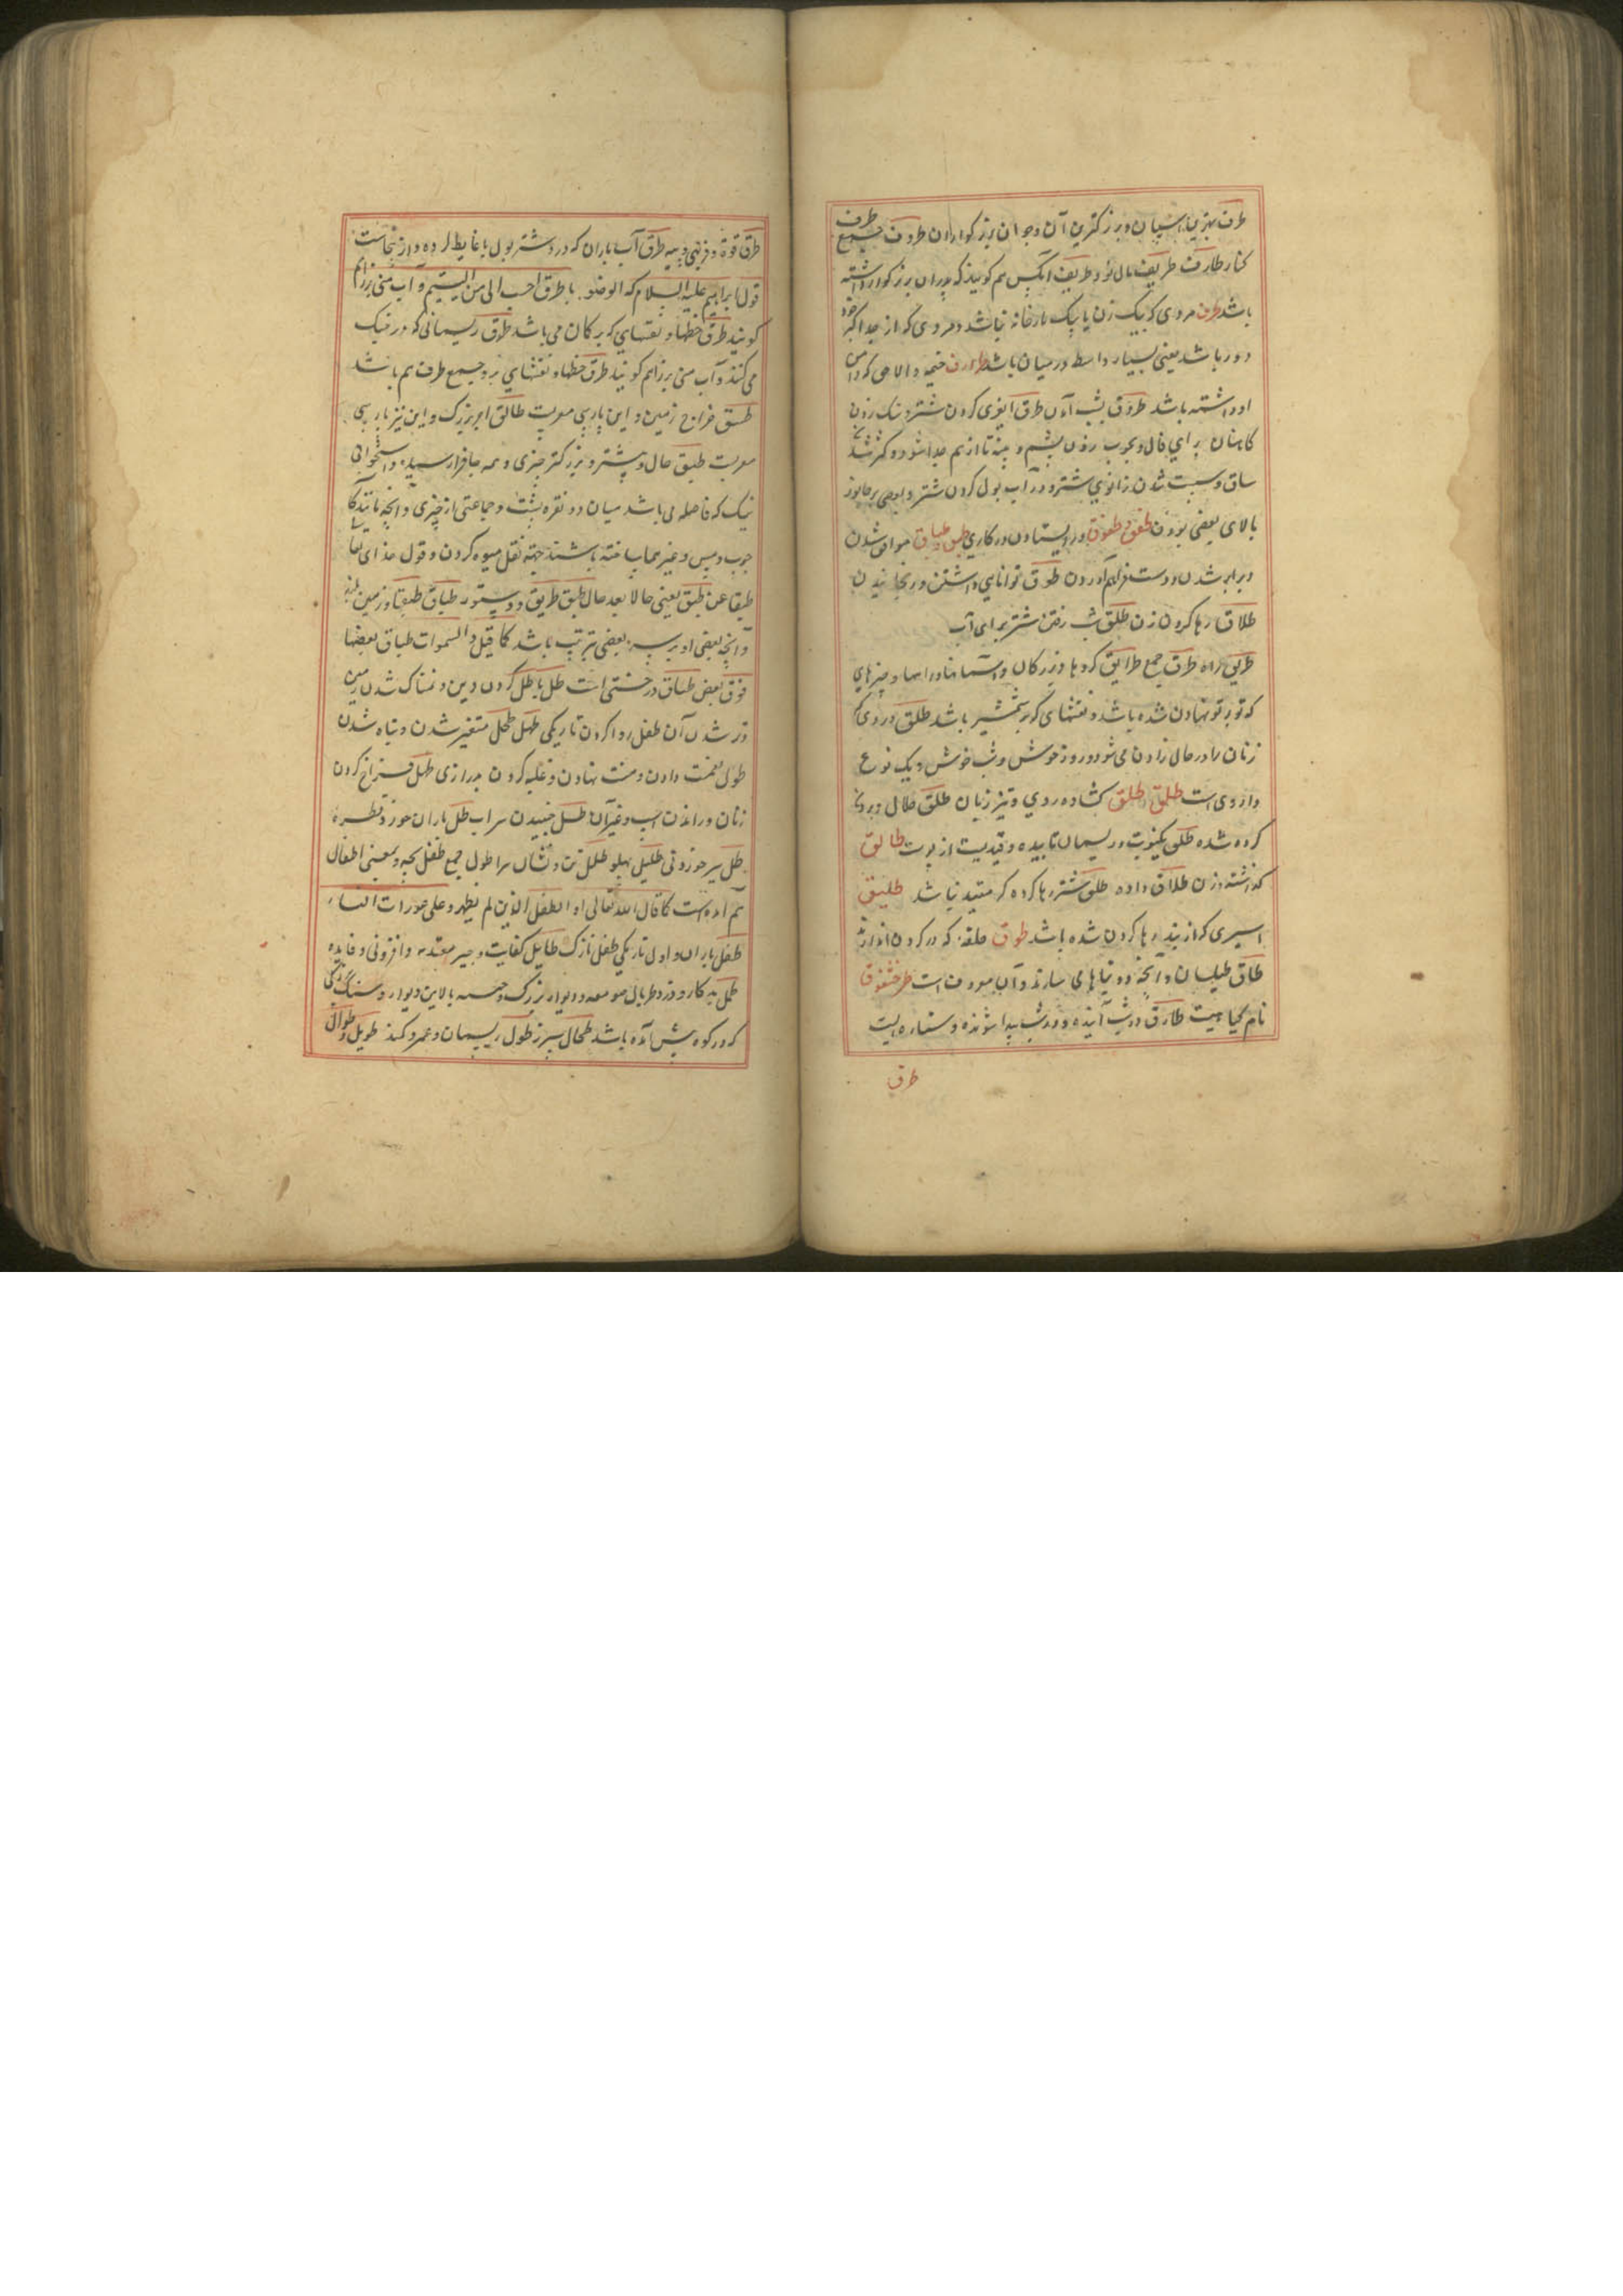 طرف بهترین اسپان و بزرکترین آن و جوان بزرکوار ان طروف جمع طرف
کنار طارف طریف مال نو و طریف انکس هم کویند که پدران بزرکوار داشته
باشد طرف مردی که بیک زن یا بیک یارخانه نباشد و مردی که از جد اکبر خود
دور باشد یعنی بسیار واسط در میان باشد طوارف خیمه والاحی که دامن
او داشته باشد طروق بشب آمدن طرق آبغوی کردن شتر و سنک زدن
کاهنان برای فال و بچوب زدن پشم و پنبه تا از هم جدا شود و کژ شدن
ساق و سست شدن زانوی شتر و در آب بول کردن شتر و بعضی پرجانور
بالای بعضی بودن طفق و طفوق در ایستادن در کاری طبق و طباق موافق شدن
و برابر شدن و دست فراهم آوردن طوق توانایی داشتن و رنجانیدن
طلاق رها کردن زن طلق شب رفتن شتر برای آب
طریق راه طرق جمع طرایق کروها و بزرکان و آسمانها و راهها و چیزهای
که تو بر تو نهادن شده باشد و نقشهای که بر شمشیر باشد طلق دردی که
زنان را در حال زادن می شود و روز خوش و شب خوش و یک نوع
داروی است طلق و طلق کشاده روی و تیز زبان طلق حلال و بیرون
کرده شده طلق یکنوبت و ریسمان تابیده و قیدیست از پوست طالق
کذاشته و زن طلاق داده طلق شتر رها کرده که مقید نباشد طلیق
اسیری که از بند رها کردن شده باشد طوق حلقه که در کردن اندازند
طاق طیلسان و آنچه در بناها می سازند و آن معروفست طرخشقوق
نام کیاهیست طارق در شب آینده و در شب پیدا شونده و ستاره ایست
طرق
طرق قوة و فربهی و پیه طرق آب باران که درو شتر بول یا غایط کرده و از نجاست
قول ابراهیم علیه السلام که الوضو بالطرق احب الی من التیمم و آب منی را هم
کویند طرق خطها و نقشهای که بر کمان می باشد طرق ریسمانی که در نیک
می کنند و آب منی را هم کویند طرق خطها و نقشهای بز و جمع طرف هم باشد
طسق خراج زمین و این پارسی معربست طالق ابر بزرک و این نیز پارسی
معربست طبق حال و پشتر و بزرکتر چیزی و همه جا فرا رسیده و استخوانی
نیک که فاصله می باشد میان دو فقره پشت و جماعتی از چیزی و آنچه مانند آنکه
چوب و مس و غیرهما ساخته باشند جهة نقل میوه کردن و قول خدای تعالی
طبقا عن طبق یعنی حالا بعد حال طبق طریق و دستور طباق طبقها و زمین طبق
و آنچه بعضی او بر سر بعضی بترتیب باشد کما قیل و السموات طباق بعضها
فوق بعض طباق درختی است طل باطل کردن دین و نمناک شدن زمین
و تر شدن آن طفل روا کردن تاریکی طهل طحل متغیر شدن و تباه شدن
طول نعمت دادن و منت نهادن و غلبه کردن بدرازی طل فراخ کردن
زنان و راندن اسب و غیر آن طسل جنبیدن سراب طل باران خورد قطره
طل شیر خوردنی طلیل پهلو طلل تن و نشان سرا طول جمع طفل بچه و بمعنی اطفال
هم آمده است کما قال الله تعالی او الطفل الذین لم یظهروا علی عورات النساء
طفل باران و اول تاریکی طفل نازک طایل کفایت و چیز معتد به و افزونی و فایده
طمل بد کار و دزد طربال صومعه و دیوار بزرک و حسه بالاین دیوار و سنک بزرکی
که در کوه پیش آمده باشد طحال سپرز طول ریسمان و عمر و کمند طویل و طوال